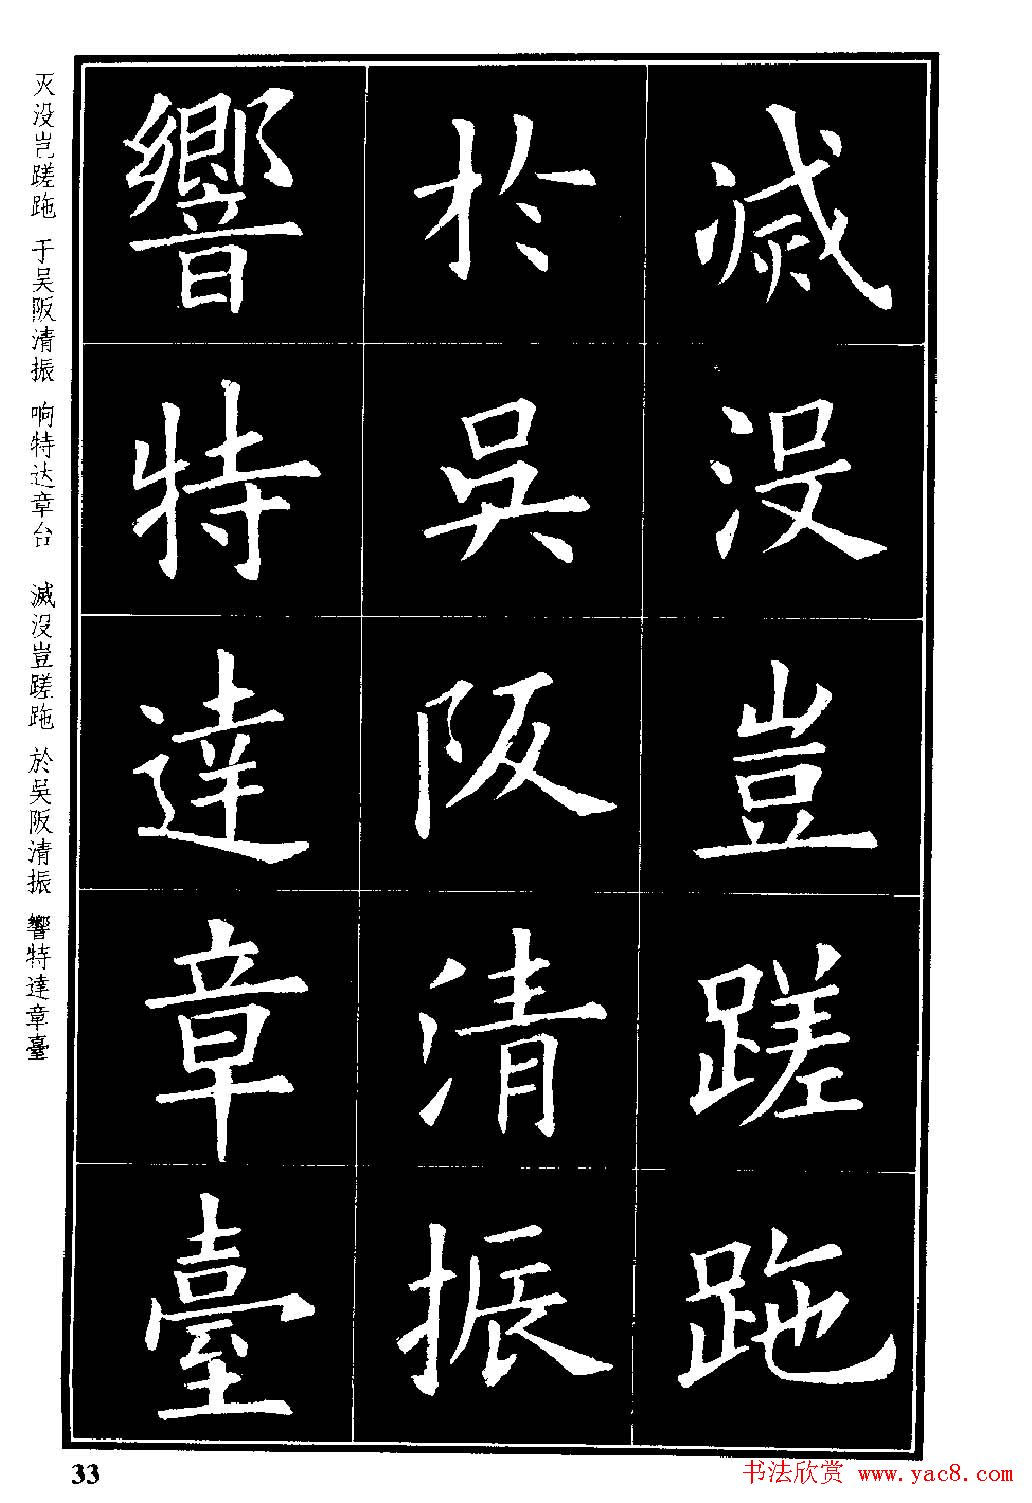 滅没豈蹉跎
於吳阪清振
響特達章臺
灭没岂蹉跎 于吴阪清振 响特达章台 滅没豈蹉跎 於吳阪清振 響特達章臺
33
书法欣赏 www.yac8.com